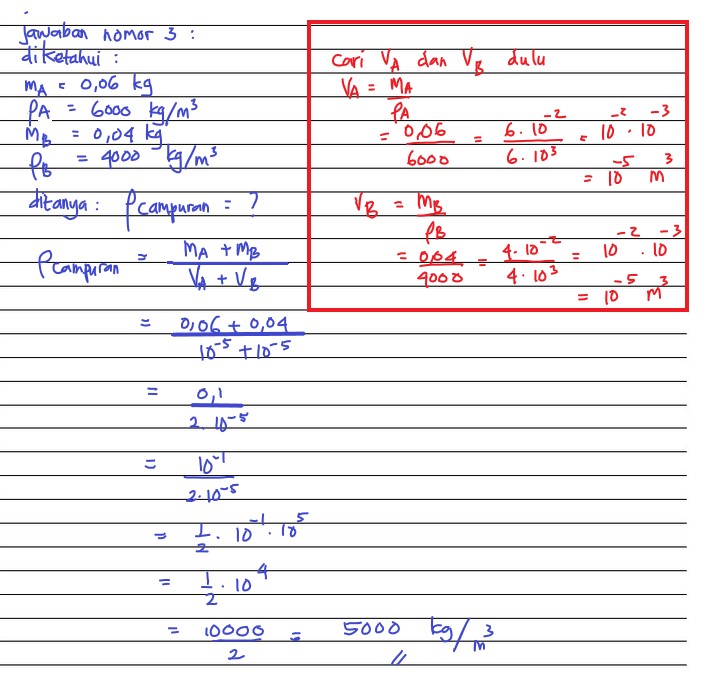 jawaban nomor 3 :
diketahui :
mA = 0,06 kg
ρA = 6000 kg/m³
MB = 0,04 kg
ρB = 4000 kg/m³
ditanya : ρcampuran = ?
ρcampuran = (MA + MB) / (VA + VB)
= (0,06 + 0,04) / (10⁻⁵ + 10⁻⁵)
= 0,1 / (2. 10⁻⁵)
= 10⁻¹ / (2.10⁻⁵)
= 1/2 . 10⁻¹ . 10⁵
= 1/2 . 10⁴
= 10000/2 = 5000 kg/m³ //
Cari VA dan VB dulu
VA = MA / ρA
= 0,06 / 6000 = 6. 10⁻² / 6. 10³ = 10⁻² . 10⁻³
= 10⁻⁵ M³
VB = MB / ρB
= 0,04 / 4000 = 4. 10⁻² / 4. 10³ = 10⁻² . 10⁻³
= 10⁻⁵ M³